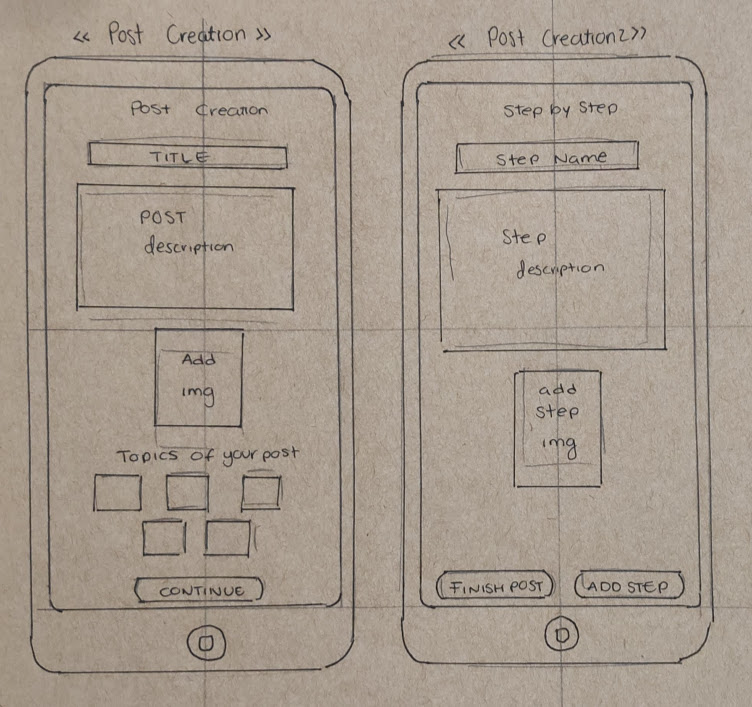 << Post Creation >>
Post Creation
TITLE
POST
description
Add
img
Topics of your post
CONTINUE
<< Post Creation2>>
Step by Step
Step Name
Step
description
add
step
img
FINISH POST
ADD STEP